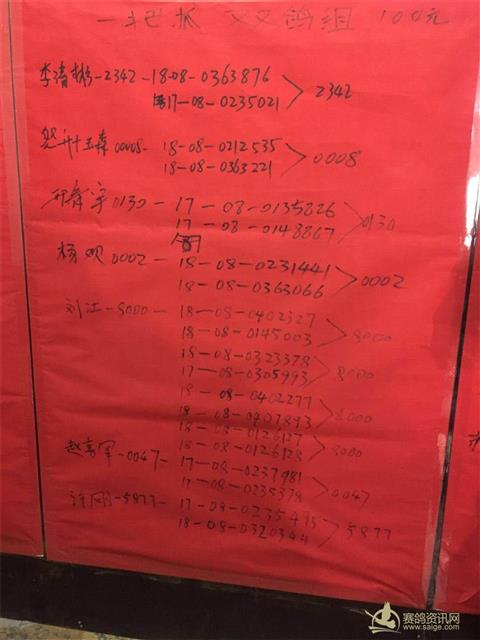 一把抓 双鸽组 100元
李清彬-2342-18-08-0363876
17-08-0235021 > 2342
0008-18-08-0212535
18-08-0363221 > 0008
0130-17-08-0135826
17-08-0148867 > 0130
杨观 0002-18-08-0231441
18-08-0363066 > 0002
刘江-8000-18-08-0402327
18-08-0145003 > 8000
18-08-0323378
17-08-0305993 > 8000
18-08-0402277
18-08-0407893 > 8000
18-08-0126127
18-08-0126128 > 8000
赵高军-0047-17-08-0237981
17-08-0235378 > 0047
许刚-5877-17-08-0235495
18-08-0320344 > 5877
赛鸽资讯网
www.saige.com